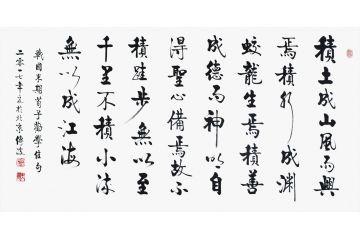 積土成山風雨興
焉積水成渊
蛟龍生焉積善
成德而神明自
得聖心備焉故不
積跬步無以至
千里不積小流
無以成江海
戰國末期荀子勸學佳句
二零一七年夏於北京